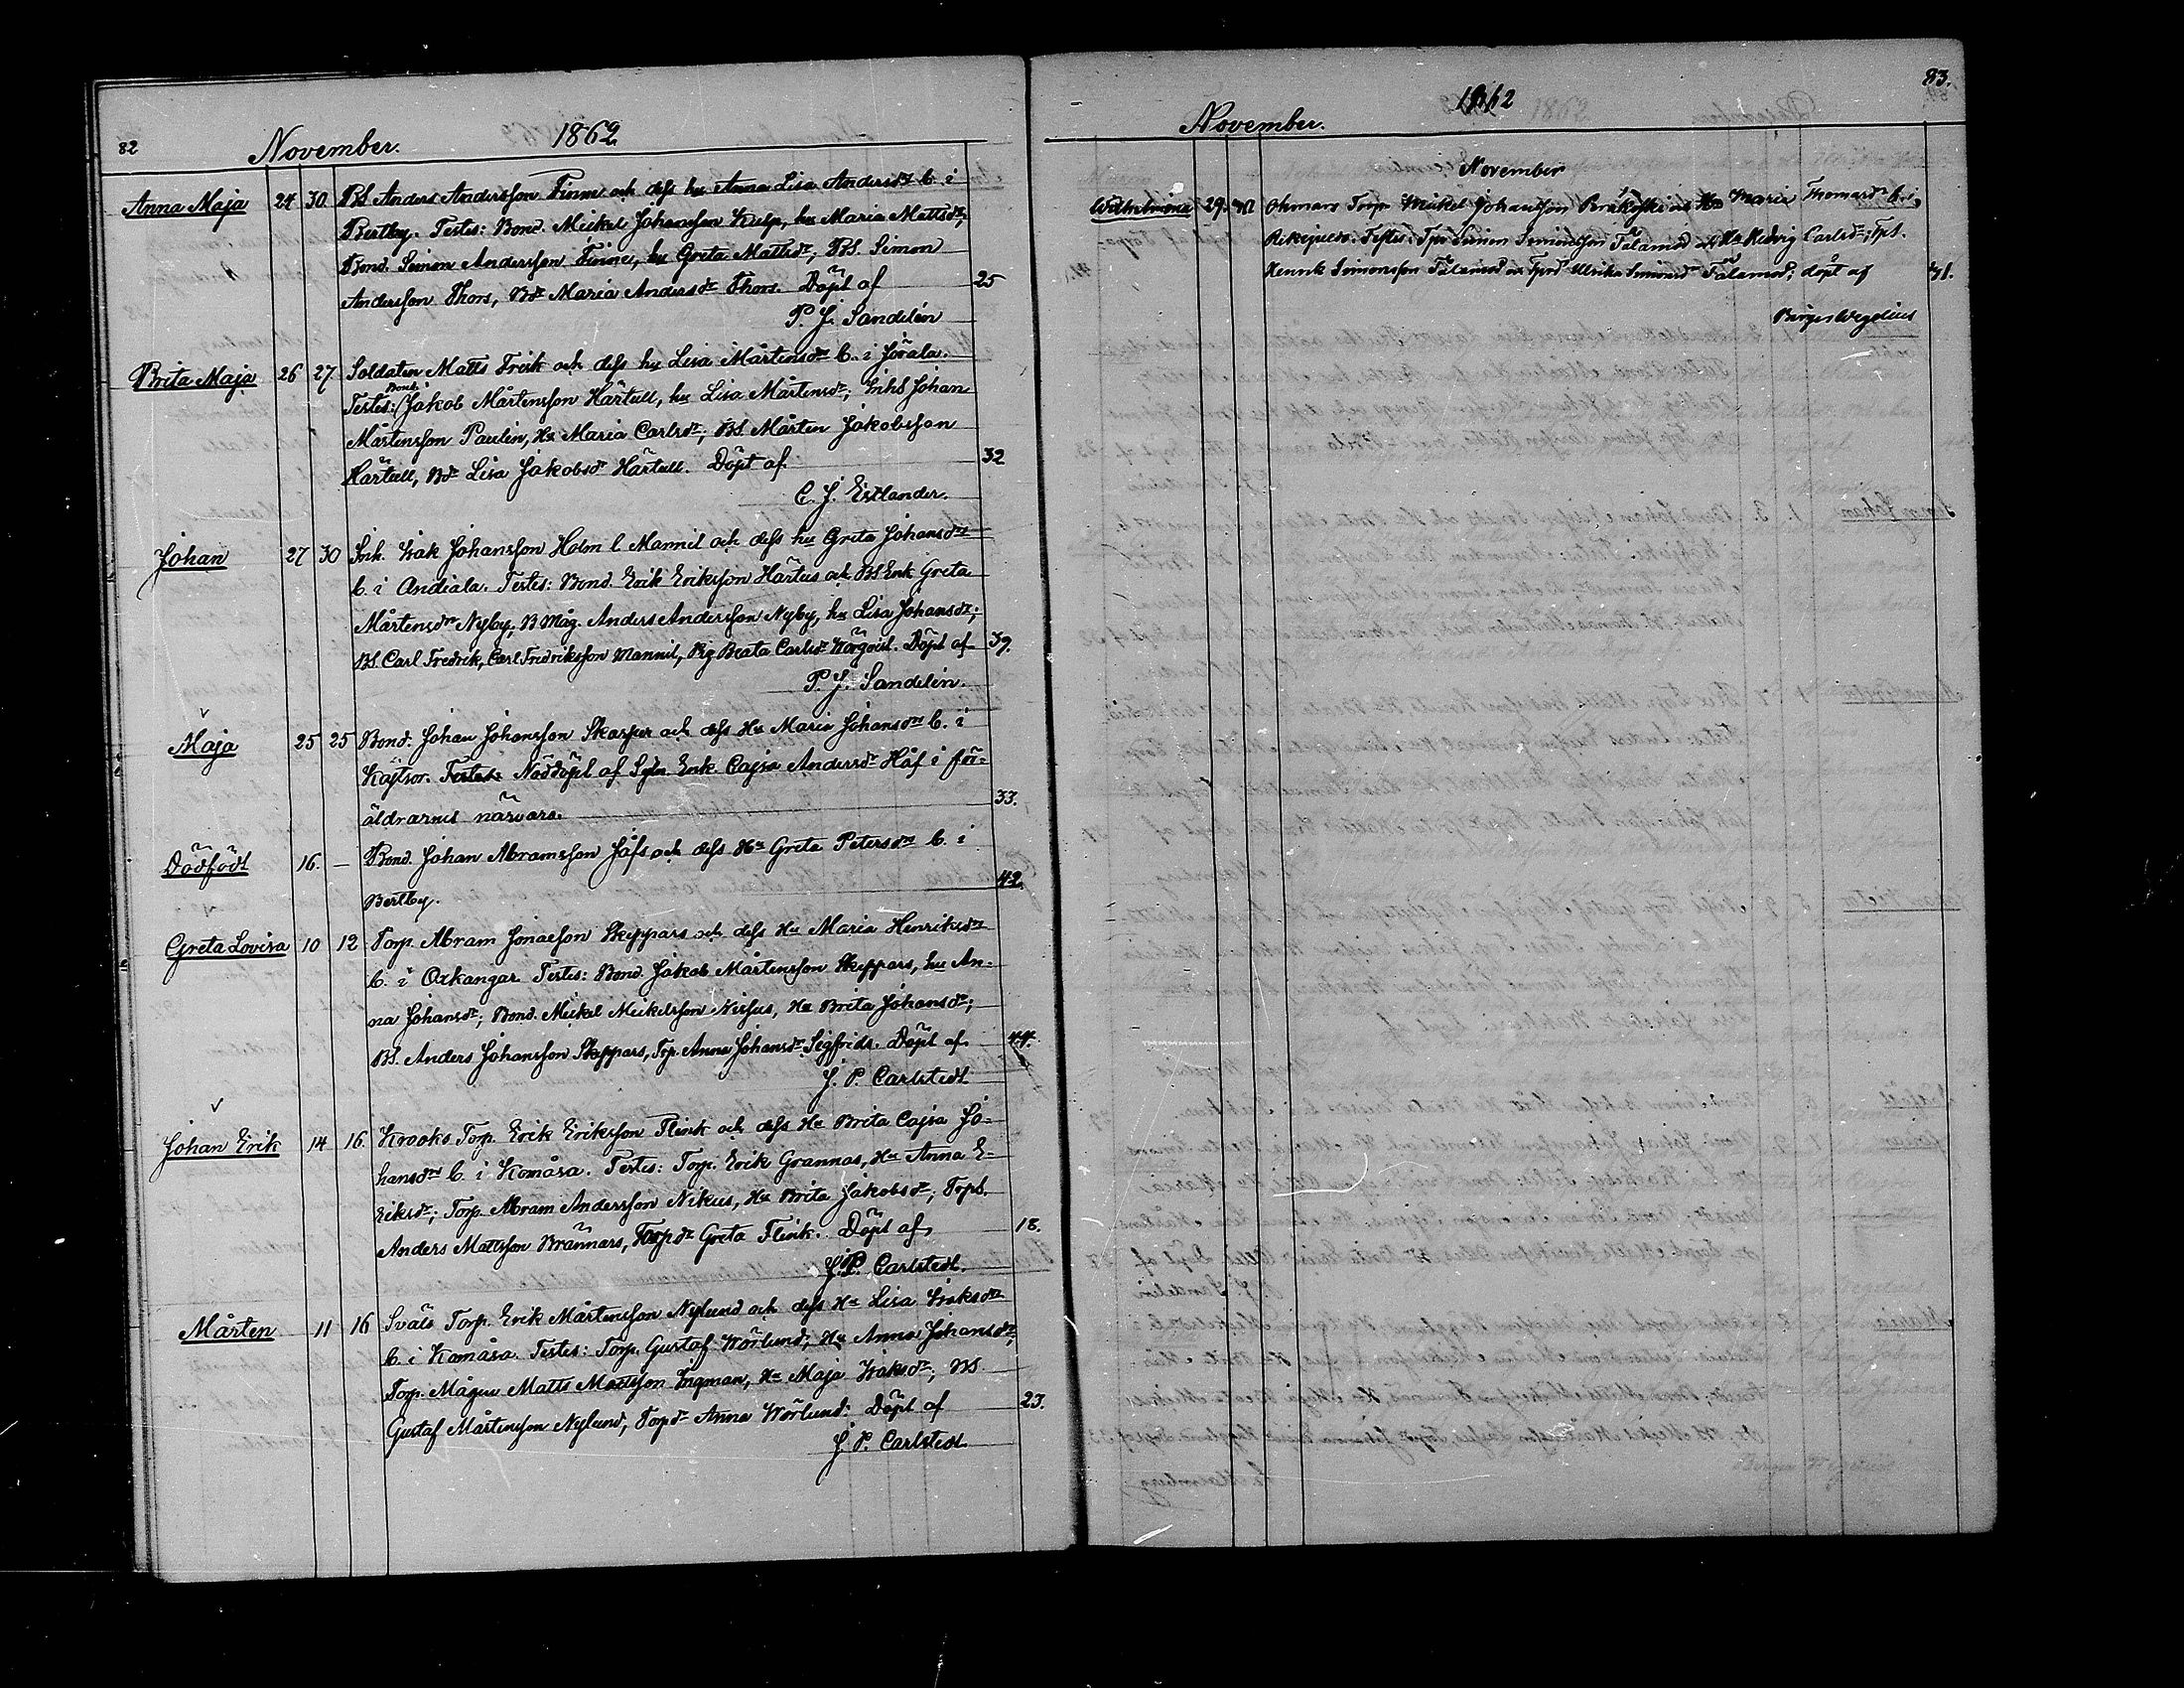 82 November. 1862
Anna Maja 24 30 BS Anders Andersson Finne och dess hu Anna Lisa Andersdr b. i
Bertby. Testes: Bond. Meikel Johansson Kulp, hu Maria Mattsdr;
Bond. Simon Andersson Finne, hu Greta Mattsdr; BS. Simon
Andersson Thors, Bdr Maria Andersdr Thors. Döpt af 25
P. J. Sandelin
Brita Maja 26 27 Soldaten Matts Frisk och dess hu Lisa Mårtensdr b. i Jörala.
Testes: Bond. Jakob Mårtensson Härtull, hu Lisa Mårtensdr; Inhs Johan
Mårtensson Paulin, Hu Maria Carlsdr; BS. Mårten Jakobsson
Härtull, Bdr Lisa Jakobsdr Härtull. Döpt af 32
C. J. Estlander.
Johan 27 30 Inh. Isak Johansson Holm l Mannil och dess hu Greta Johansdr
b. i Andiala. Testes: Bond. Erik Eriksson Härtus och BS Enk Greta
Mårtensdr Nyby, B Måg. Anders Andersson Nyby, hu Lisa Johansdr;
BS. Carl Fredrik, Carl Fredriksson Mannil, Pig Beata Carlsdr Wörqvist. Döpt af 39.
P. J. Sandelin.
Maja 25 25 Bond. Johan Johansson Skasper och dess Hu Maria Johansdr b. i
Kaytsor. Testes: Nöddöpt af Sytn Enk. Cajsa Andersdr Håf i för-
äldrarnes närvaro. 33.
Dödfödt 16. — Bond. Johan Abramsson Jåfs och dess Hu Greta Petersdr b. i
Bertby. 42.
Greta Lovisa 10 12 Torp. Abram Jonaeson Skeppars och dess Hu Maria Henriksdr
b. i Oxkangar Testes: Bond. Jakob Mårtensson Skeppars, hu An-
na Johansdr; Bond. Meikel Meikelsson Nissus, Hu Brita Johansdr;
BS. Anders Johansson Skeppars, Tp. Anna Johansdr Sigfrids. Döpt af 44.
J. P. Carlstedt
Johan Erik 14 16. Krooks Torp. Erik Eriksson Flink och dess Hu Brita Cajsa Jo-
hansdr b. i Komåsa. Testes: Torp. Erik Grannas, Hu Anna E-
riksdr; Torp. Abram Andersson Nikus, Hu Brita Jakobsdr; TorpS.
Anders Mattsson Brännars, Torpdr Greta Flink. Döpt af 18.
J. P. Carlstedt.
Mårten 11 16 Sväls Torp. Erik Mårtensson Nylund och dess Hu Lisa Isaksdr
b. i Komåsa. Testes: Torp. Gustaf Wörlund, Hu Anna Johansdr;
Torp. Mågen Matts Mattsson Ingman, Hu Maja Isaksdr; BS
Gustaf Mårtensson Nylund, Torpdr Anna Wörlund. Döpt af 23.
J. P. Carlstedt
November. 1862 83.
November
Wilhelmina 29. Ohmars Torp. Mikel Johansson och Hu Maria Thomasdr b. i
Rekipeldo. Testes: Tpr Simon Simonsson Tälamod och Hu Hedvig Carlsdr; TpS.
Henrik Simonsson Tälamod och Tprdr Ulrika Simonsdr Tälamod; döpt af 41.
Birger Wegelius